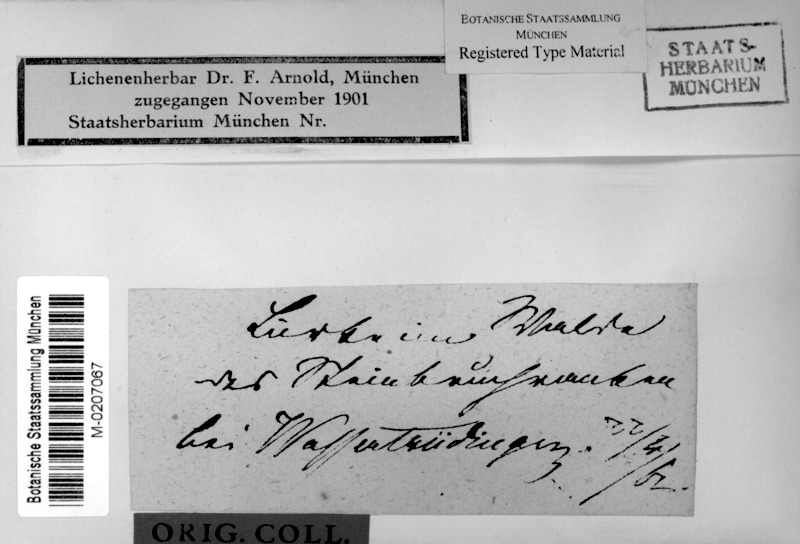 BOTANISCHE STAATSSAMMLUNG
MÜNCHEN
Registered Type Material
STAATS-
HERBARIUM
MÜNCHEN
Lichenenherbar Dr. F. Arnold, München
zugegangen November 1901
Staatsherbarium München Nr.
Botanische Staatssammlung München
M-0207067
im Walde
des
bei Wassertrüdingen.
ORIG. COLL.